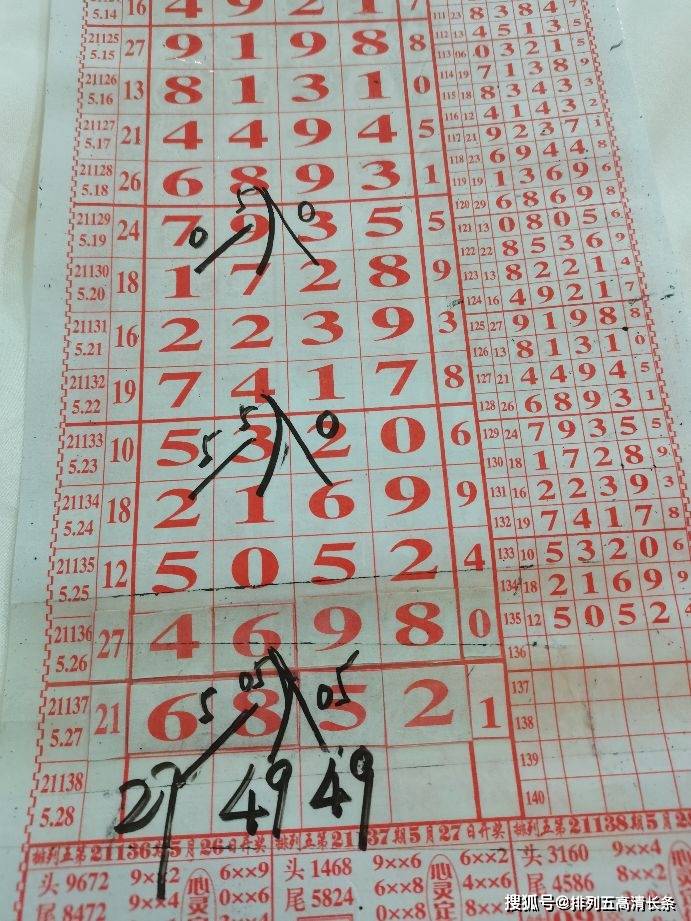 5.14 16 4 9 2 1 7
21125 5.15 27 9 1 9 8 8
21126 5.16 13 8 1 3 1 0
21127 5.17 21 4 4 9 4 5
21128 5.18 26 6 8 9 3 1
5 0
21129 5.19 24 7 9 3 5 5
0
21130 5.20 18 1 7 2 8 9
21131 5.21 16 2 2 3 9 3
21132 5.22 19 7 4 1 7 8
5 0
21133 5.23 10 5 3 2 0 6
5
21134 5.24 18 2 1 6 9 9
21135 5.25 12 5 0 5 2 4
21136 5.26 27 4 6 9 8 0
05 05
21137 5.27 21 6 8 5 2 1
5
21138 5.28 27 49 49
111 23 8 3 8 4 7
112 13 4 5 1 3 5
113 06 0 3 2 1 5
114 19 7 1 3 8 9
115 18 8 3 4 3 3
116 12 4 1 4 3 2
117 21 9 2 3 7 1
118 23 6 9 4 4 8
119 19 1 3 6 9 6
120 29 6 8 6 9 8
121 13 0 8 0 5 6
122 22 8 5 3 6 9
123 13 8 2 2 1 4
124 16 4 9 2 1 7
125 27 9 1 9 8 8
126 13 8 1 3 1 0
127 21 4 4 9 4 5
128 26 6 8 9 3 1
129 24 7 9 3 5 5
130 18 1 7 2 8 9
131 16 2 2 3 9 3
132 19 7 4 1 7 8
133 10 5 3 2 0 6
134 18 2 1 6 9 9
135 12 5 0 5 2 4
136
137
138
139
140
排列五第21136期5月26日开奖 排列五第21137期5月27日开奖 排列五第21138期5月28
头 9672 9××2 6××9 头 1468 9××6 6××2 头 3160 9××4
尾 8472 9××4 0××6 尾 5824 6××8 4××6 尾 4586 8××2
心灵 心灵
搜狐号@排列五高清长条